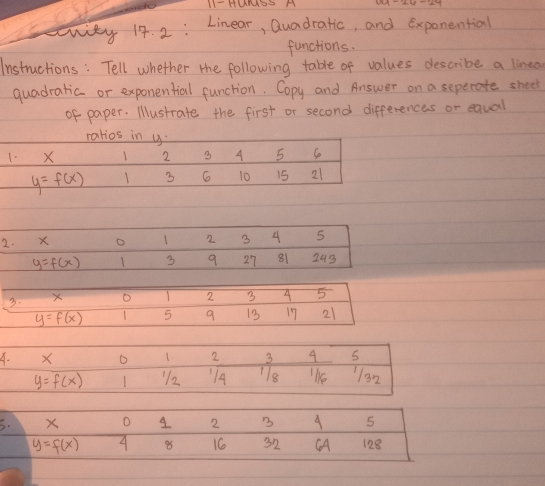 11-HUMSS A
17.2: Linear, Quadratic, and Exponential
functions.
Instructions: Tell whether the following table of values describe a linear
quadratic or exponential function. Copy and Answer on a seperate sheet
of paper. Illustrate the first or second differences or equal
ratios in y.
1. X 1 2 3 4 5 6
y=f(x) 1 3 6 10 15 21
2. x 0 1 2 3 4 5
y=f(x) 1 3 9 27 81 243
3. x 0 1 2 3 4 5
y=f(x) 1 5 9 13 17 21
4. X 0 1 2 3 4 5
y=f(x) 1 1/2 1/4 1/8 1/16 1/32
5. X 0 1 2 3 4 5
y=f(x) 4 8 16 32 64 128